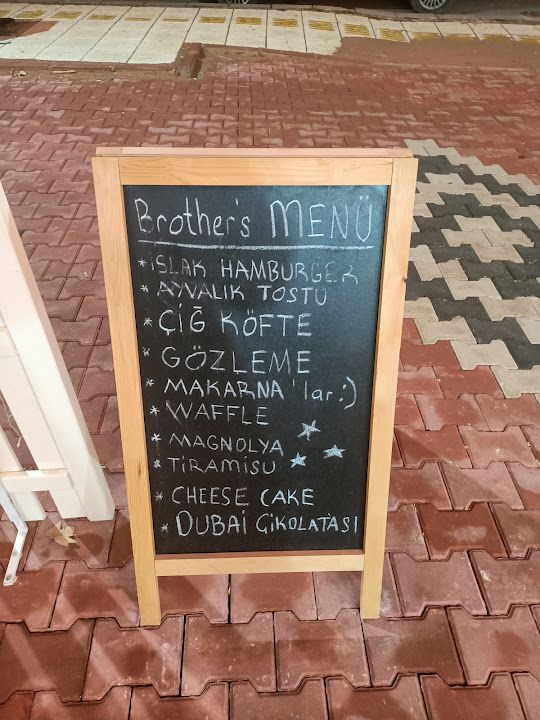 Brother's MENÜ
* ISLAK HAMBURGER
* AYVALIK TOSTU
* ÇİĞ KÖFTE
* GÖZLEME
* MAKARNA'lar :)
* WAFFLE
* MAGNOLYA
* TİRAMİSU
* CHEESE CAKE
* DUBAİ ÇİKOLATASI